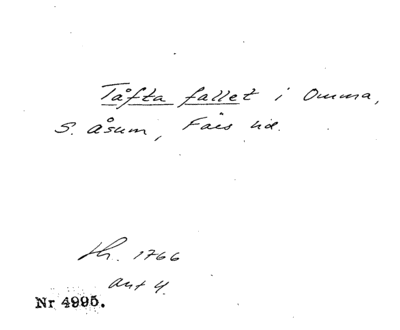 Tåfta fallet i Omma,
S. Åsum, Färs hd.
th. 1766
ant 4.
Nr 4995.